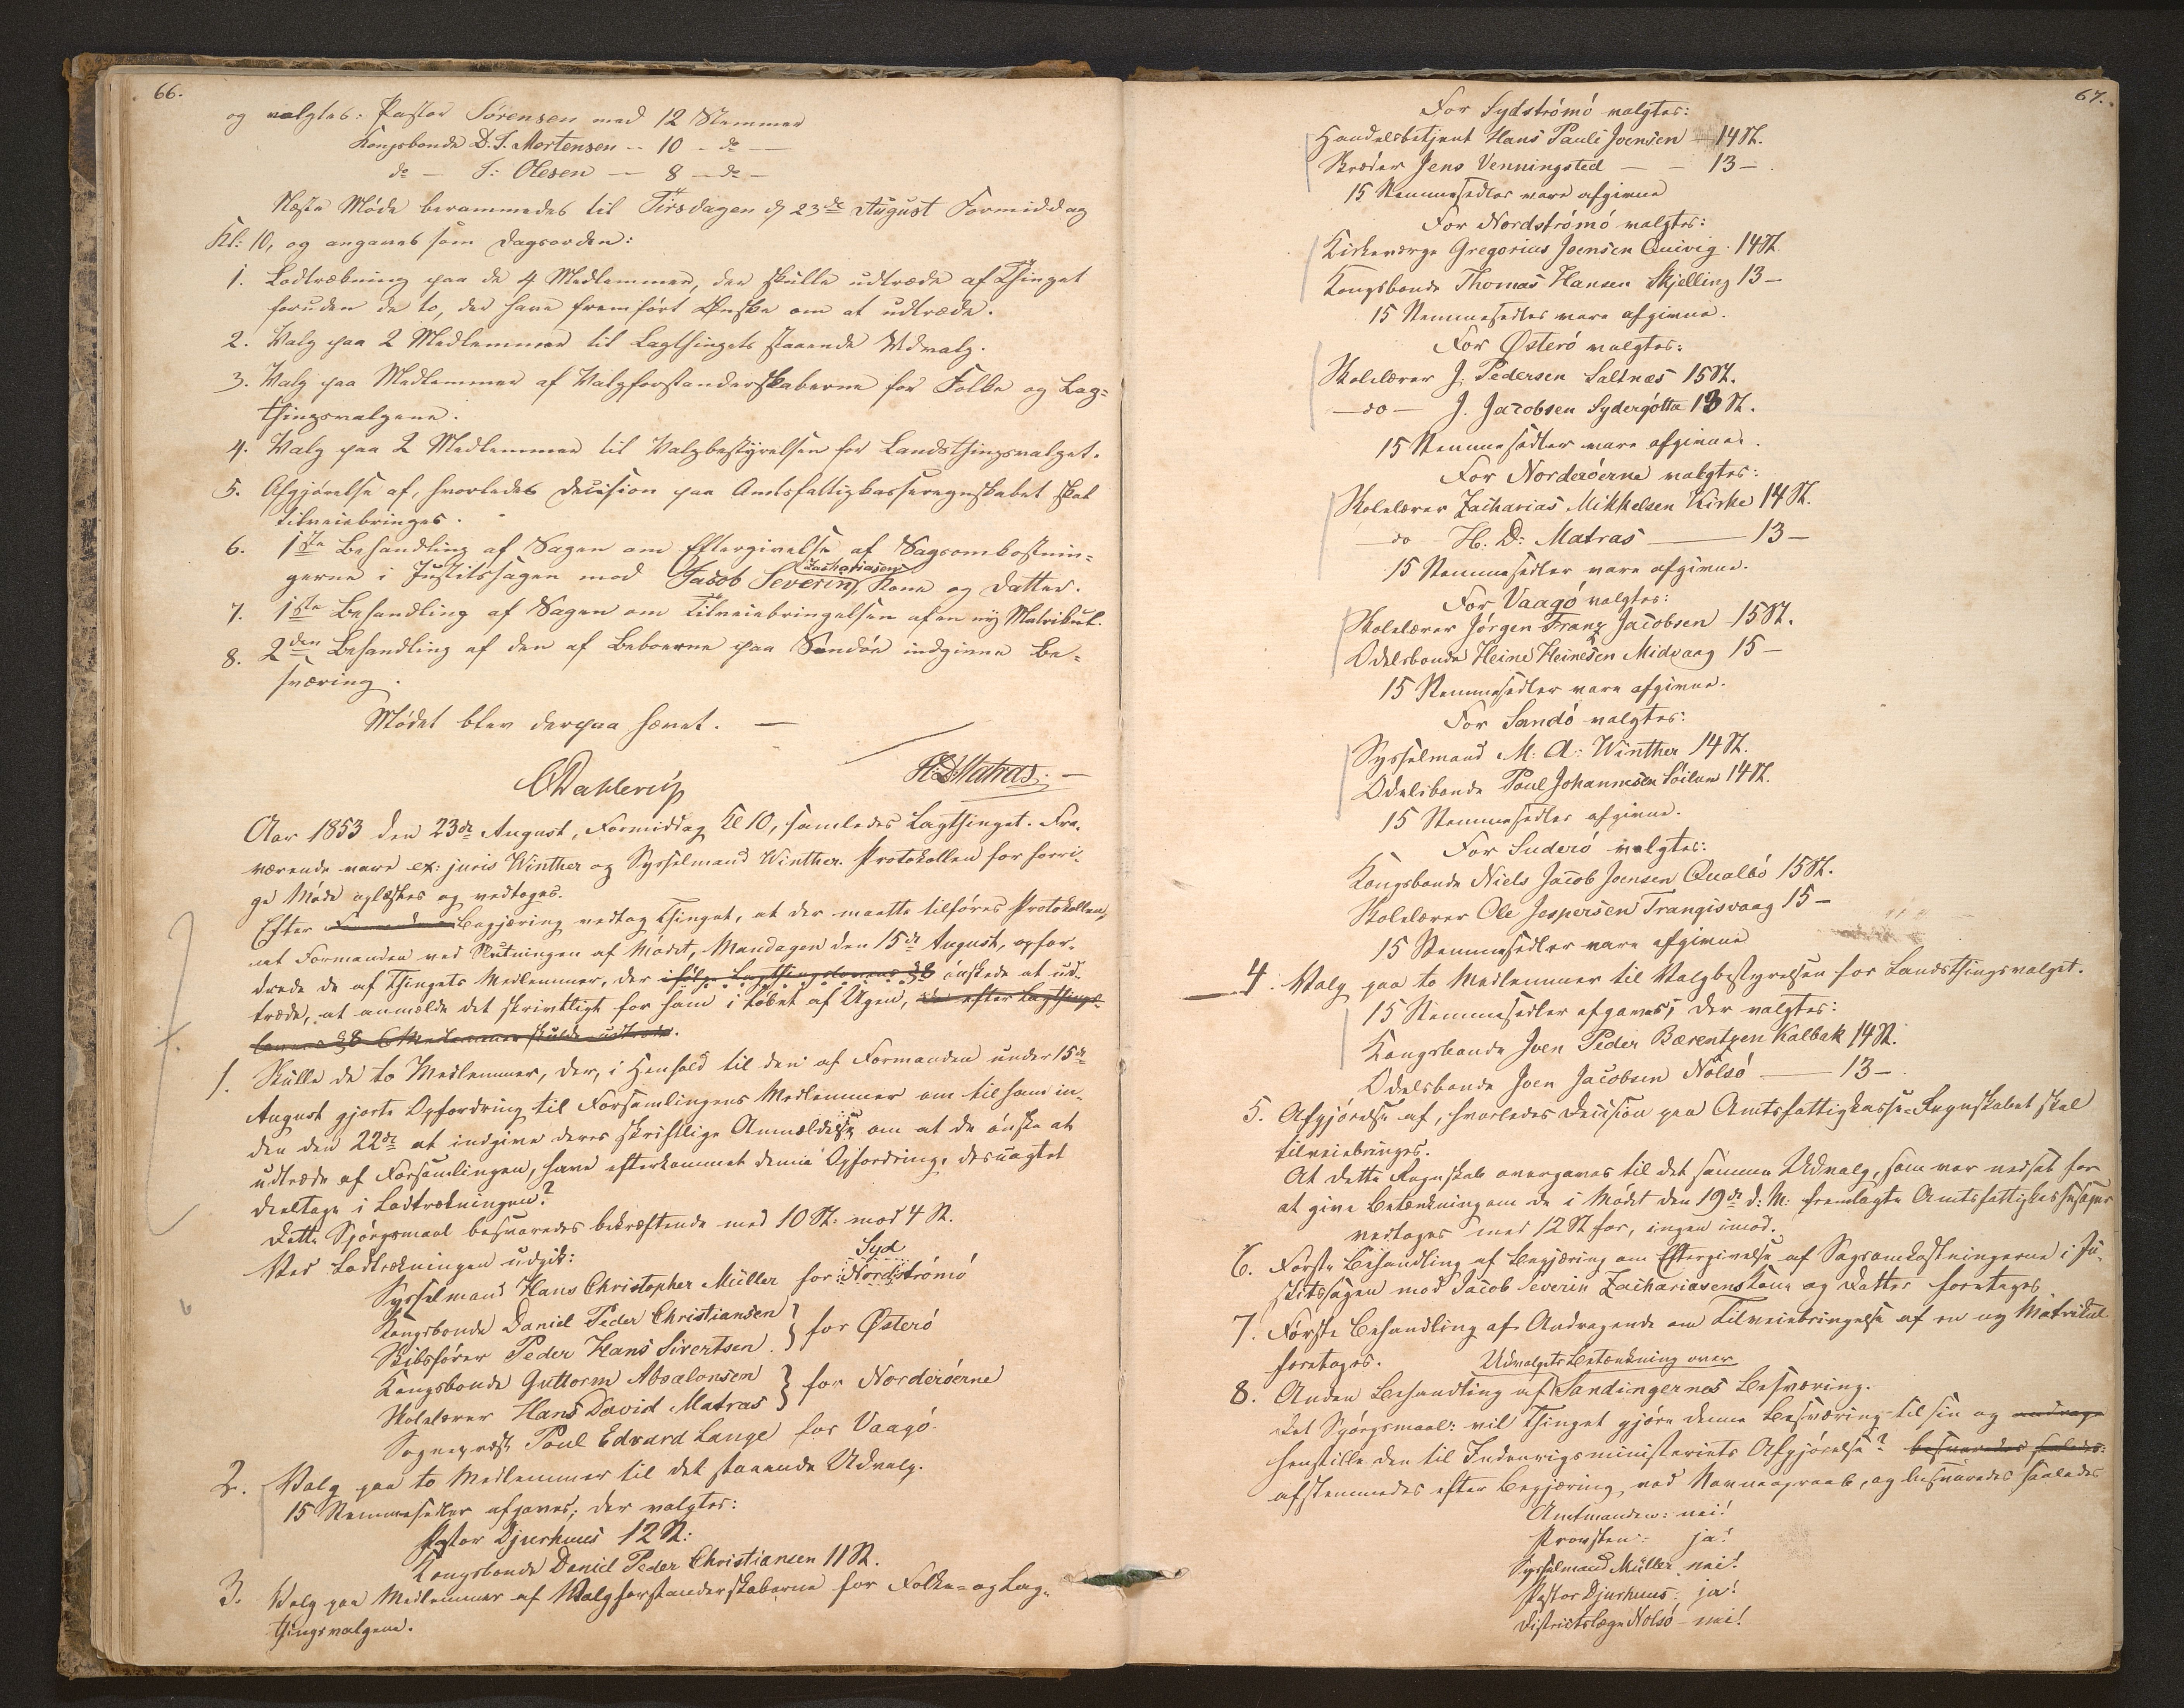 66.
og valgtes: Pastor Sørensen med 12 Stemmer
Kongsbonde D. J. Mortensen -- 10 - do —
do — J: Olesen — 8 — do —
Næste Møde berammedes til Tirsdagen d. 23de August Formiddag
Kl: 10, og angaves som Dagsorden:
1. Lodtrækning paa de 4 Medlemmer, der skulle udtræde af Thinget
foruden de to, der have fremført Ønske om at udtræde.
2. Valg paa 2 Medlemmer til Lagthingets staaende Udvalg.
3. Valg paa Medlemmer af Valgforstanderskaberne for Folke og Lag=
thingsvalgene.
4. Valg paa 2 Medlemmer til Valgbestyrelsen for Landsthingsvalget.
5. Afgjørelse af, hvorledes Decision paa Amtsfattigkasseregnskabet skal
tilveiebringes.
6. 1ste Behandling af Sagen om Eftergivelse af Sagsomkostnin=
gerne i Justitssagen mod Jacob Severin Zachariasens Kone og Datter.
7. 1ste Behandling af Sagen om Tilveiebringelsen af en ny Matrikul.
8. 2den Behandling af den af Beboerne paa Sandøe indgivne Be=
sværing.
Mødet blev derpaa hævet. —
CDahlerup
H.D.Matras. —
Aar 1853 den 23de August, Formiddag Kl 10, samledes Lagthinget. Fra-
værende vare ex: juris Winther og Sysselmand Winther. Protokollen for forri-
ge Møde oplæstes og vedtoges.
Efter Formandens Begjæring vedtog Thinget, at der maatte tilføres Protokollen,
at Formanden ved Slutningen af Mødet, Mandagen den 15de August, opfor-
drede de af Thingets Medlemmer, der ifølge Lagthingslovens §8 ønskede at ud-
træde, at anmelde det skrivtligt for ham i Løbet af Ugen, da efter Lagthings-
lovens §8 6 Medlemmer skulde udtræde.
1. Skulle de to Medlemmer, der, i Henhold til den af Formanden under 15de
August gjorte Opfordring til Forsamlingens Medlemmer om til ham in-
den den 22de at indgive deres skriftlige Anmeldelse om at de ønske at
udtræde af Forsamlingen, have efterkommet denne Opfordring, desuagtet
deeltage i Lodtrækningen?
Dette Spørgsmaal besvaredes bekræftende med 10 St: mod 4 St.
Ved Lodtrækningen udgik:
Syd
Sysselmand Hans Christopher Müller for Nordstrømø
Kongsbonde Daniel Peder Christiansen
Skibsfører Peder Hans Sivertsen. } for Østerø
Kongsbonde Guttorm Absalonsen
Skolelærer Hans David Matras } for Norderøerne
Sognepræst Poul Edvard Lange for Vaagø.
2. Valg paa to Medlemmer til det staaende Udvalg.
15 Stemmesedler afgaves; der valgtes:
Pastor Djurhuus 12 St:
Kongsbonde Daniel Peder Christiansen 11 St.
3. Valg paa Medlemmer af Valgforstanderskaberne for Folke- og Lag-
thingsvalgene.
67.
For Sydstrømø valgtes:
Handelsbetjent Hans Pauli Joensen — 14 St.
Skræder Jens Venningsted — — 13 —
15 Stemmesedler vare afgivne
For Nordstrømø valgtes:
Kirkeværge Gregorius Joensen Quivig. 14 St.
Kongsbonde Thomas Hansen Skjelling 13 —
15 Stemmesedler vare afgivne.
For Østerø valgtes:
Skolelærer J. Pedersen Saltnæs 15 St.
— do — J. Jacobsen Sydergøtta 13 St.
15 Stemmesedler vare afgivne.
For Norderøerne valgtes:
Skolelærer Zacharias Mikkelsen Kirke 14 St.
— do — H. D: Matras — 13 —
15 Stemmesedler vare afgivne.
For Vaagø valgtes:
Skolelærer Jørgen Franz Jacobsen 15 St.
Odelsbonde Heine Heinesen Midvaag 15 —
15 Stemmesedler vare afgivne.
For Sandø valgtes:
Sysselmand M. A: Winther 14 St.
Odelsbonde Poul Johannesen Søilum 14 St.
15 Stemmesedler afgivne.
For Suderø valgtes:
Kongsbonde Niels Jacob Joensen Qualbø 15 St.
Skolelærer Ole Jespersen Trangisvaag 15 —
15 Stemmesedler vare afgivne
4. Valg paa to Medlemmer til Valgbestyrelsen for Landsthingsvalget.
15 Stemmesedler afgaves; der valgtes:
Kongsbonde Joen Peder Bærentzen Kalbak 14 St.
Odelsbonde Joen Jacobsen Nolsø — 13 —
5. Afgjørelse af, hvorledes Decision paa Amtsfattigkasse-Regnskabet skal
tilveiebringes.
At dette Regnskab overgaves til det samme Udvalg, som var nedsat for
at give Betænkning om de i Mødet den 19de d: M: fremlagte Amtsfattigkassesager
vedtoges med 12 St for, ingen imod.
6. Første Behandling af Begjæring om Eftergivelse af Sagsomkostningerne i Ju-
stitssagen mod Jacob Severin Zachariasens Kone og Datter foretoges
7. Første Behandling af Andragende om Tilveiebringelse af en ny Matrikul
foretoges.
Udvalgets Betænkning over
8. Anden Behandling af Sandingernes Besværing.
Det Spørgsmaal: vil Thinget gjøre denne Besværing til sin og andrage
henstille den til Indenrigsministeriets Afgjørelse? besvaredes saaledes:
afstemmedes efter Begjæring ved Navneopraab, og besvaredes saaledes
Amtmanden: nei!
Provsten: ja!
Sysselmand Müller nei!
Pastor Djurhuus: ja!
Districtslæge Nolsø — nei!